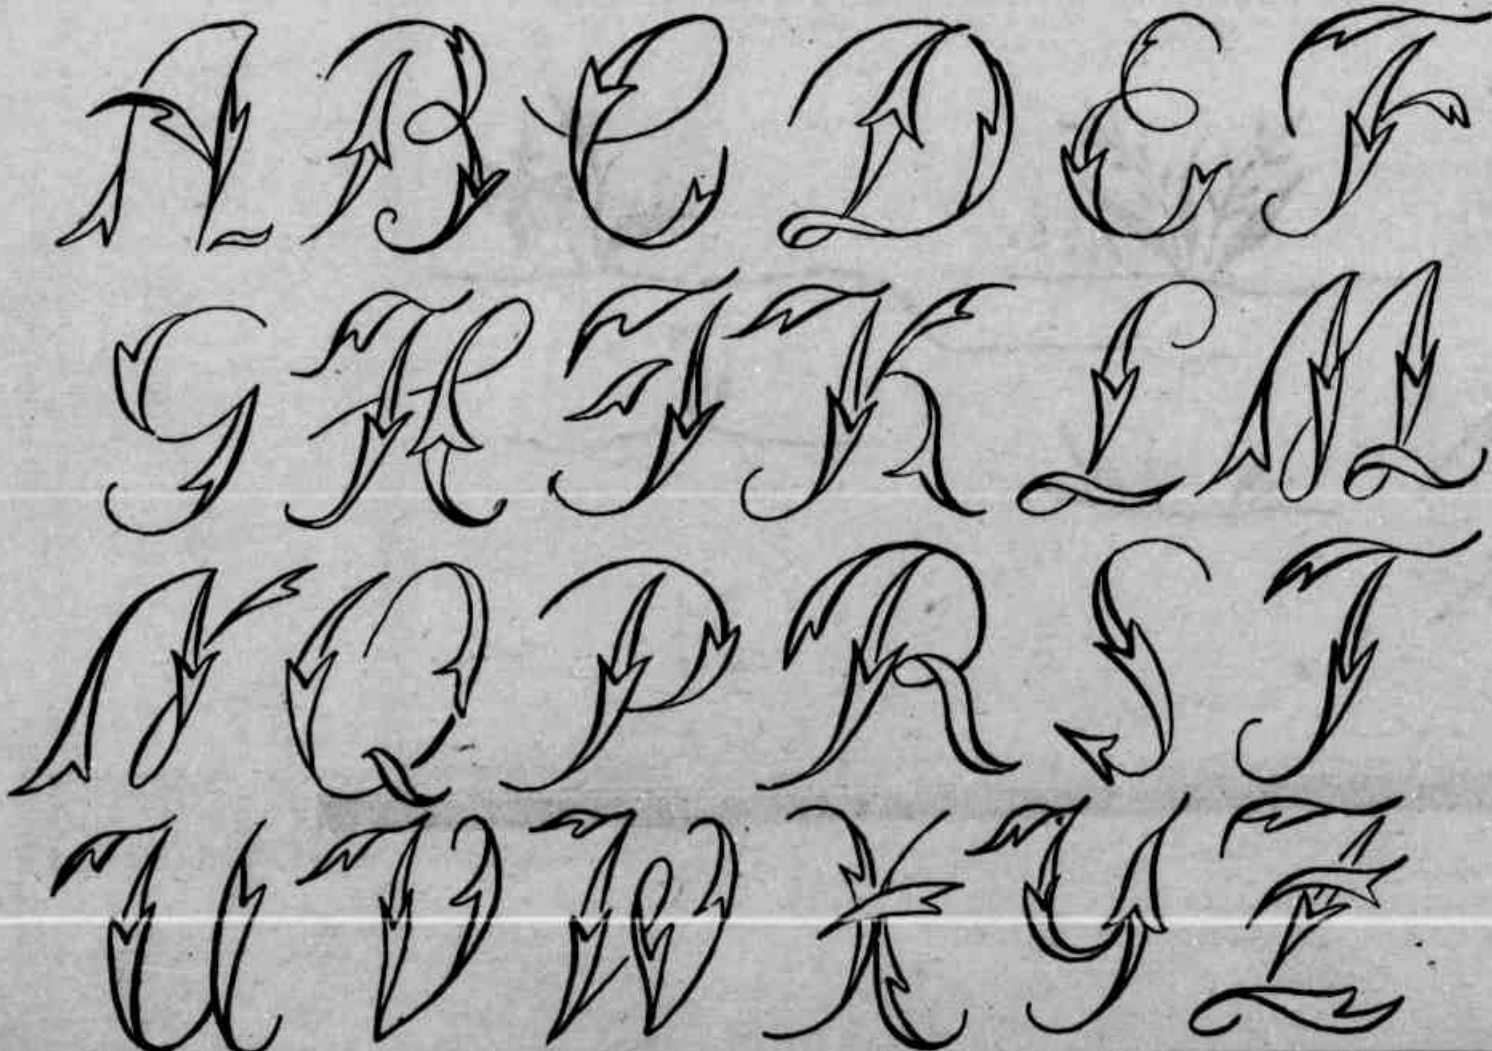 A B C D E F
G H I K L M
N Q P R S T
U V W X Y Z